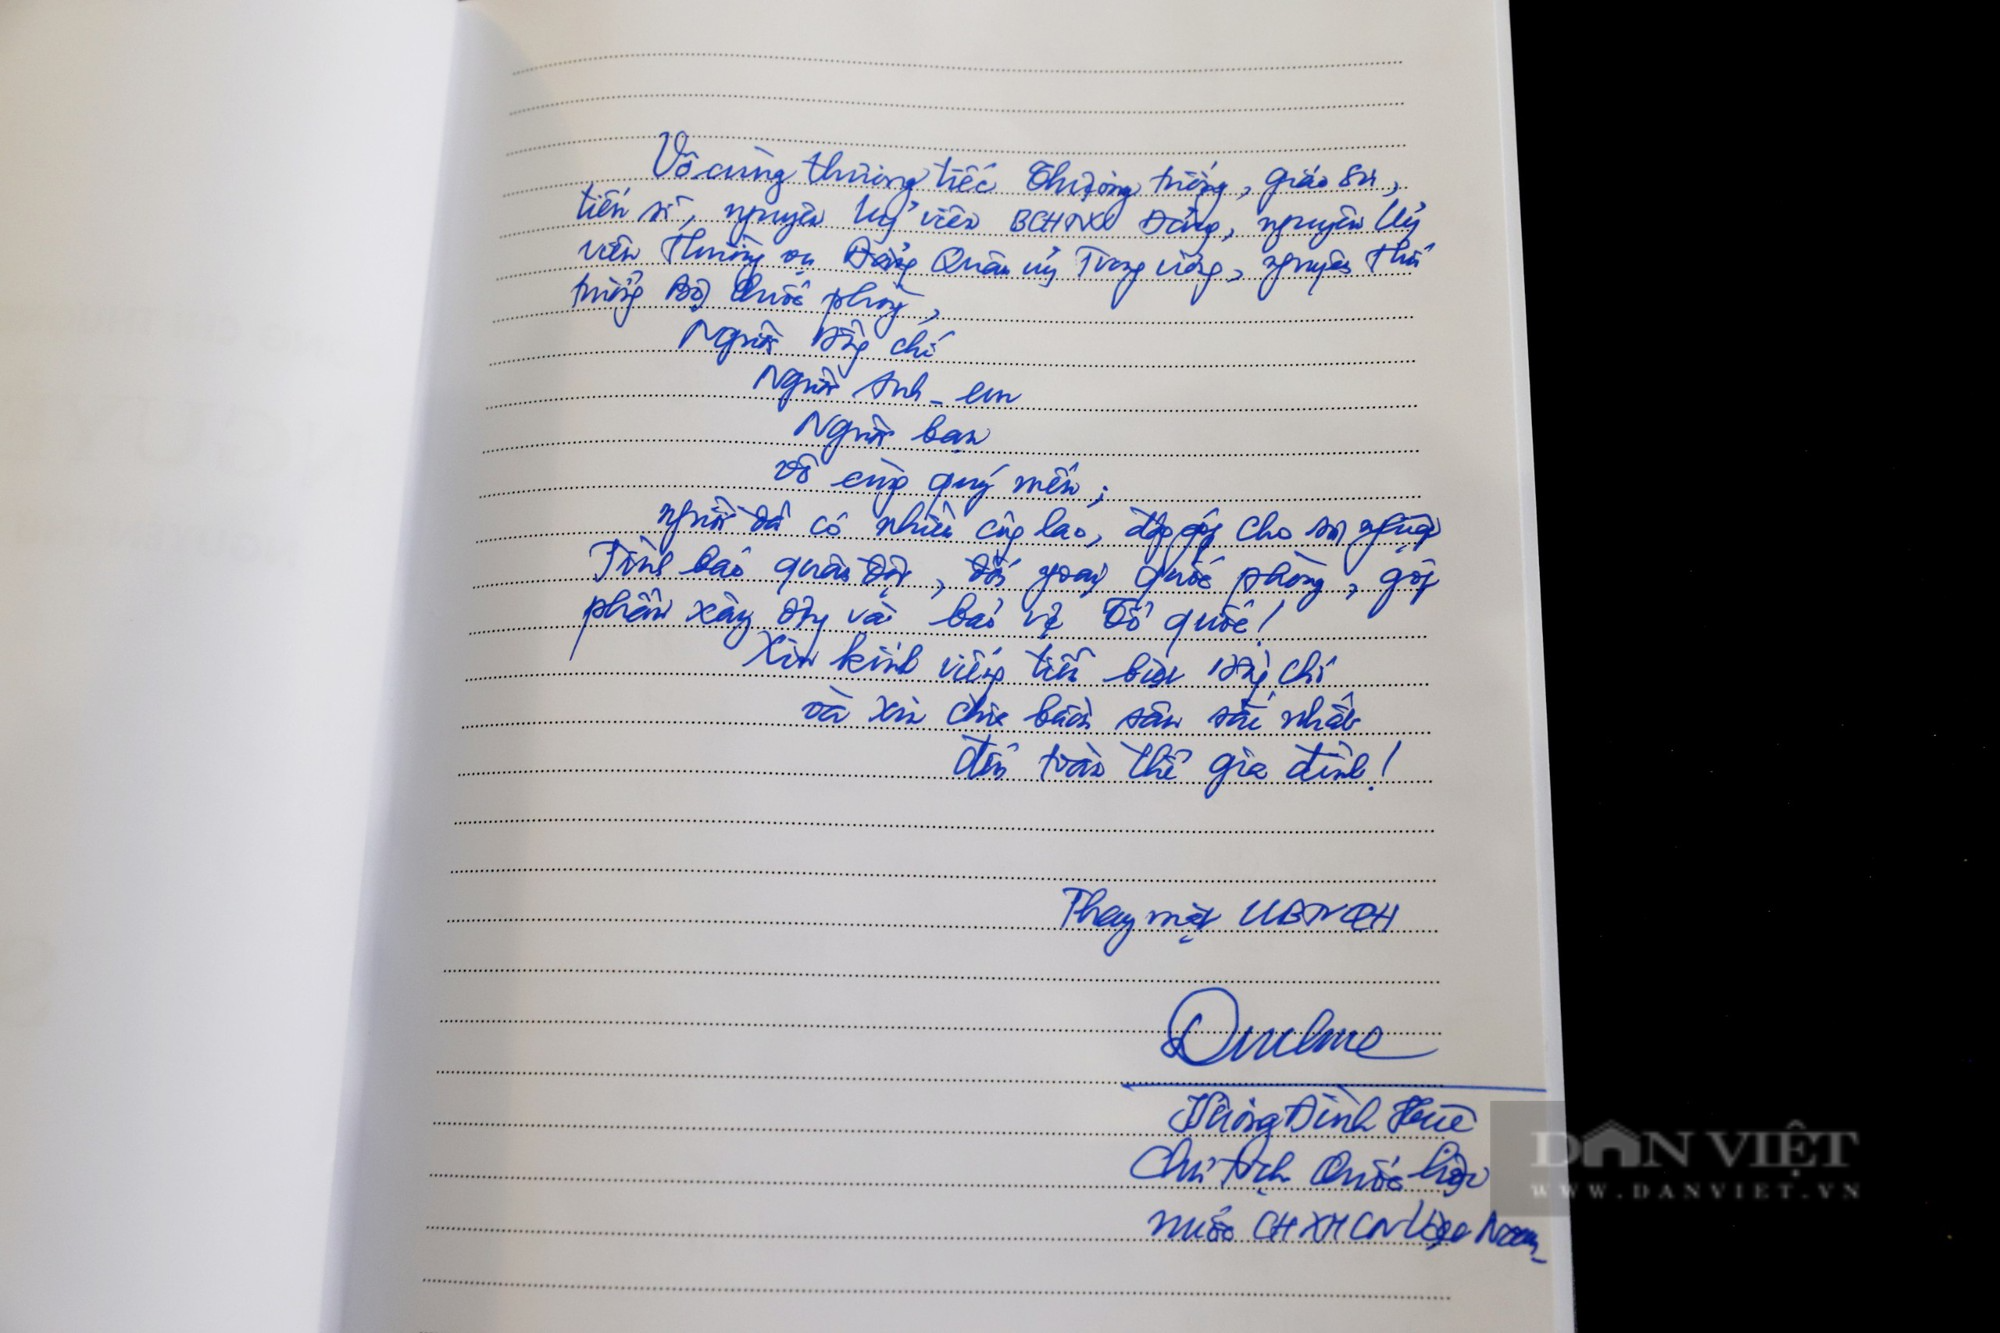 Vô cùng thương tiếc Thượng tướng, giáo sư,
tiến sĩ, nguyên Uỷ viên BCHTW Đảng, nguyên Uỷ
viên Thường vụ Đảng Quân uỷ Trung ương, nguyên Thứ
trưởng Bộ Quốc phòng,
Người Đồng chí
Người Anh - em
Người bạn
vô cùng quý mến;
người đã có nhiều công lao, đóng góp cho sự nghiệp
Tình báo quân đội, đối ngoại quốc phòng, góp
phần xây dựng và bảo vệ Tổ quốc!
Xin kính viếng tiễn biệt Đồng chí
và xin chia buồn sâu sắc nhất
đến toàn thể gia đình!
Thay mặt UBTVQH
Vương Đình Huệ
Chủ tịch Quốc hội
nước CHXHCN Việt Nam
DÂN VIỆT
WWW.DANVIET.VN